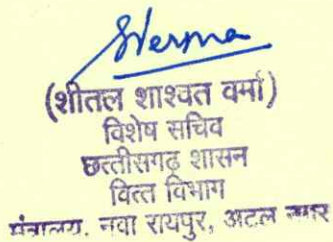 Verma
(शीतल शाश्वत वर्मा)
विशेष सचिव
छत्तीसगढ़ शासन
वित्त विभाग
मंत्रालय, नवा रायपुर, अटल नगर